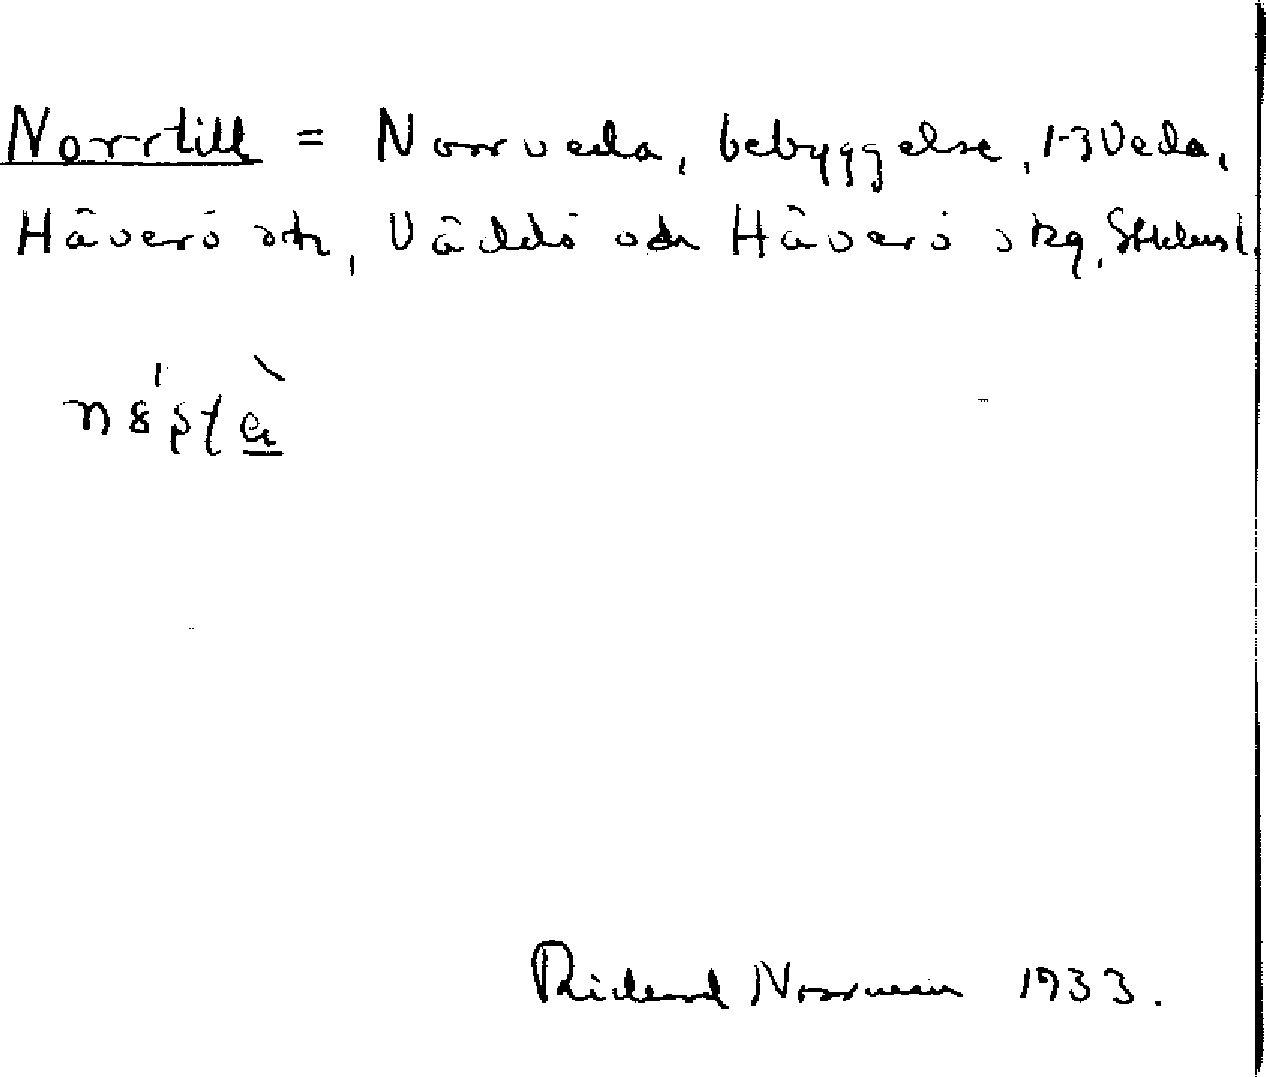 Norrtill = Norrveda, bebyggelse, 1-3 Veda,
Häverö sn, Väddö och Häverö skg, Sthlms l.
Rickard Norrman 1933.